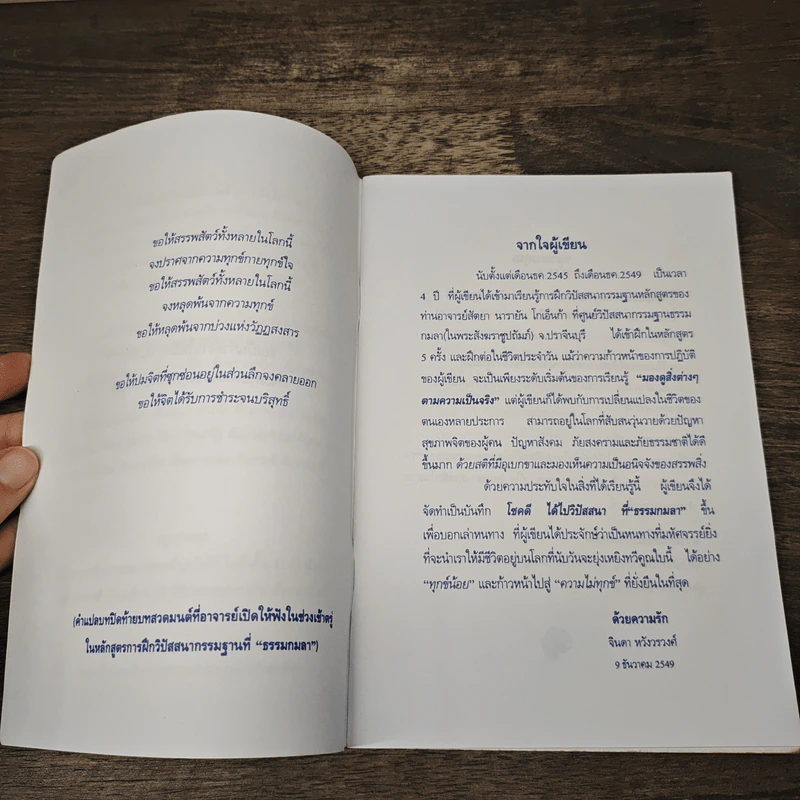 ขอให้สรรพสัตว์ทั้งหลายในโลกนี้
จงปราศจากความทุกข์กายทุกข์ใจ
ขอให้สรรพสัตว์ทั้งหลายในโลกนี้
จงหลุดพ้นจากความทุกข์
ขอให้หลุดพ้นจากบ่วงแห่งวัฏฏสงสาร
ขอให้ปมจิตที่ซุกซ่อนอยู่ในส่วนลึกจงคลายออก
ขอให้จิตได้รับการชำระจนบริสุทธิ์
(คำแปลบทปิดท้ายบทสวดมนต์ที่อาจารย์เปิดให้ฟังในช่วงเช้าตรู่
ในหลักสูตรการฝึกวิปัสสนากรรมฐานที่ “ธรรมกมลา”)
จากใจผู้เขียน
นับตั้งแต่เดือนธค.2545 ถึงเดือนธค.2549 เป็นเวลา
4 ปี ที่ผู้เขียนได้เข้ามาเรียนรู้การฝึกวิปัสสนากรรมฐานหลักสูตรของ
ท่านอาจารย์สัตยา นารายัน โกเอ็นก้า ที่ศูนย์วิปัสสนากรรมฐานธรรม
กมลา(ในพระสังฆราชูปถัมภ์) จ.ปราจีนบุรี ได้เข้าฝึกในหลักสูตร
5 ครั้ง และฝึกต่อในชีวิตประจำวัน แม้ว่าความก้าวหน้าของการปฏิบัติ
ของผู้เขียน จะเป็นเพียงระดับเริ่มต้นของการเรียนรู้ “มองดูสิ่งต่างๆ
ตามความเป็นจริง” แต่ผู้เขียนก็ได้พบกับการเปลี่ยนแปลงในชีวิตของ
ตนเองหลายประการ สามารถอยู่ในโลกที่สับสนวุ่นวายด้วยปัญหา
สุขภาพจิตของผู้คน ปัญหาสังคม ภัยสงครามและภัยธรรมชาติได้ดี
ขึ้นมาก ด้วยสติที่มีอุเบกขาและมองเห็นความเป็นอนิจจังของสรรพสิ่ง
ด้วยความประทับใจในสิ่งที่ได้เรียนรู้นี้ ผู้เขียนจึงได้
จัดทำเป็นบันทึก โชคดี ได้ไปวิปัสสนา ที่“ธรรมกมลา” ขึ้น
เพื่อบอกเล่าหนทาง ที่ผู้เขียนได้ประจักษ์ว่าเป็นหนทางที่มหัศจรรย์ยิ่ง
ที่จะนำเราให้มีชีวิตอยู่บนโลกที่นับวันจะยุ่งเหยิงทวีคูณใบนี้ ได้อย่าง
“ทุกข์น้อย” และก้าวหน้าไปสู่ “ความไม่ทุกข์” ที่ยั่งยืนในที่สุด
ด้วยความรัก
จินตา หวังวรวงศ์
9 ธันวาคม 2549